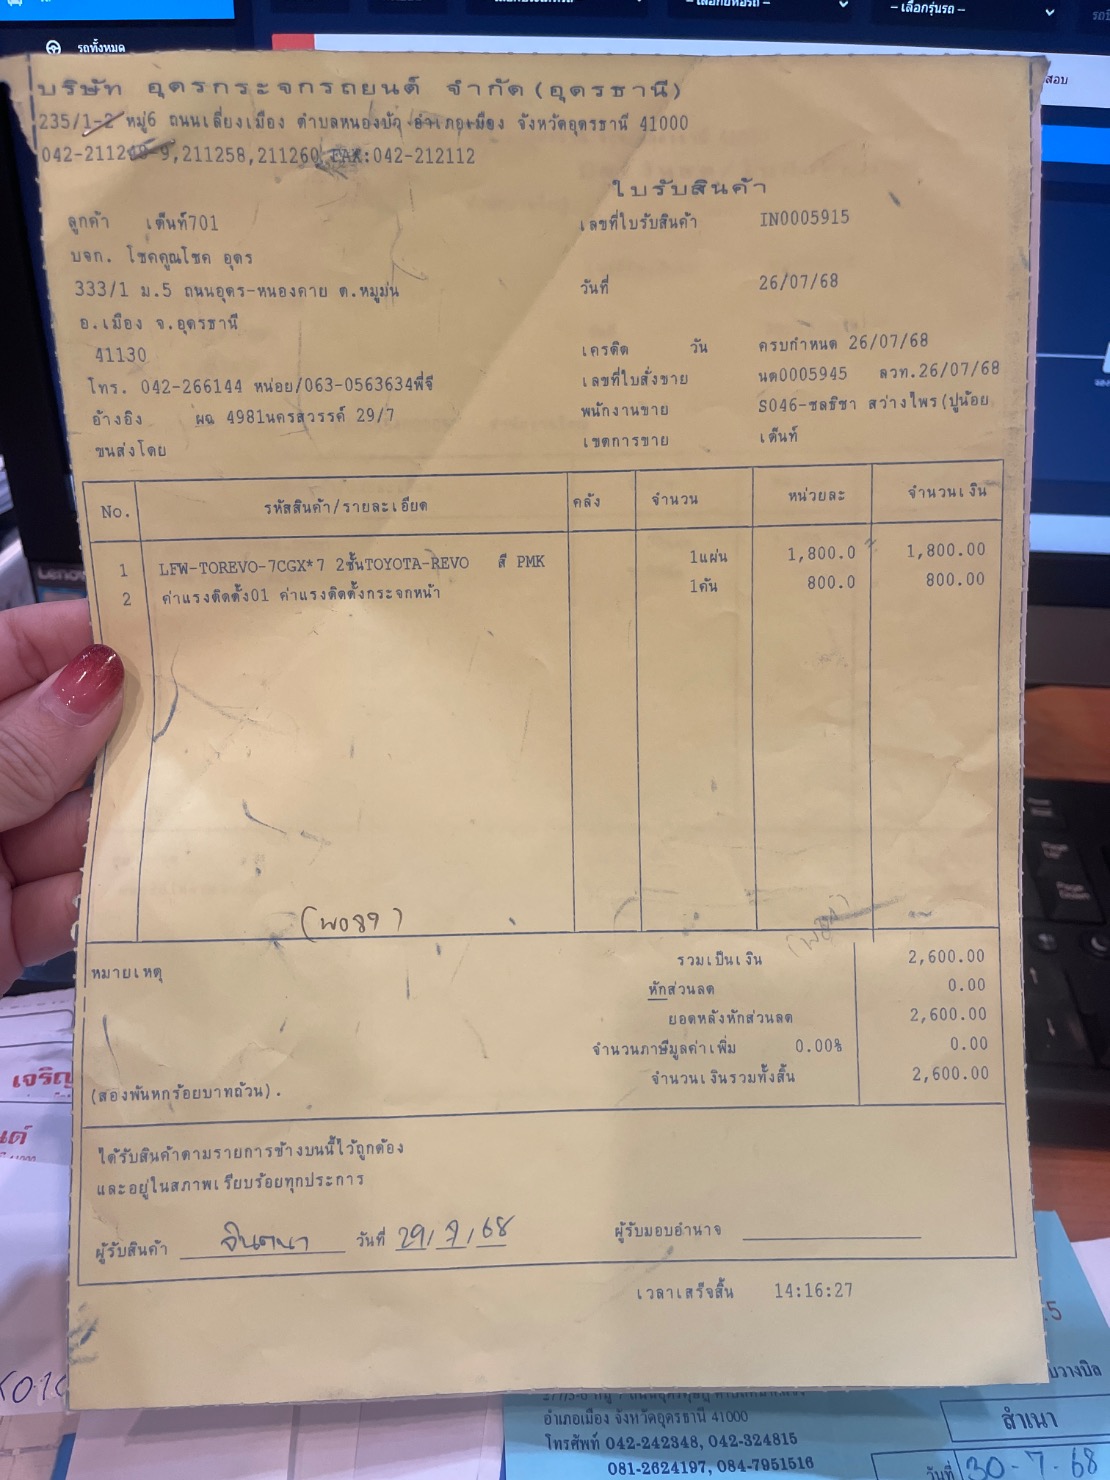 รถทั้งหมด
-- เลือกยี่ห้อรถ --
-- เลือกรุ่นรถ --
บริษัท อุดรกระจกรถยนต์ จำกัด(อุดรธานี)
235/1-2 หมู่6 ถนนเลี่ยงเมือง ตำบลหนองบัว อำเภอเมือง จังหวัดอุดรธานี 41000
042-211208-9,211258,211260 FAX:042-212112
ใบรับสินค้า
ลูกค้า เต็นท์701
เลขที่ใบรับสินค้า IN0005915
บจก. โชคคูณโชค อุดร
333/1 ม.5 ถนนอุดร-หนองคาย ต.หมูม่น
วันที่ 26/07/68
อ.เมือง จ.อุดรธานี
41130
เครดิต วัน ครบกำหนด 26/07/68
โทร. 042-266144 หน่อย/063-0563634พี่จี
เลขที่ใบสั่งขาย นด0005945 ลวท.26/07/68
อ้างอิง ผฉ 4981นครสวรรค์ 29/7
พนักงานขาย S046-ชลธิชา สว่างไพร(ปูน้อย
ขนส่งโดย
เขตการขาย เต็นท์
No. รหัสสินค้า/รายละเอียด คลัง จำนวน หน่วยละ จำนวนเงิน
1 LFW-TOREVO-7CGX*7 2ชั้นTOYOTA-REVO สี PMK 1แผ่น 1,800.0 1,800.00
2 ค่าแรงติดตั้ง01 ค่าแรงติดตั้งกระจกหน้า 1คัน 800.0 800.00
หมายเหตุ
รวมเป็นเงิน 2,600.00
หักส่วนลด 0.00
ยอดหลังหักส่วนลด 2,600.00
จำนวนภาษีมูลค่าเพิ่ม 0.00% 0.00
(สองพันหกร้อยบาทถ้วน).
จำนวนเงินรวมทั้งสิ้น 2,600.00
ได้รับสินค้าตามรายการข้างบนนี้ไว้ถูกต้อง
และอยู่ในสภาพเรียบร้อยทุกประการ
ผู้รับสินค้า จินตนา วันที่ 29/7/68 ผู้รับมอบอำนาจ
เวลาเสร็จสิ้น 14:16:27
เจริญ
อำเภอเมือง จังหวัดอุดรธานี 41000
โทรศัพท์ 042-242348, 042-324815
081-2624197, 084-7951516
บวางบิล
สำเนา
วันที่ 30-7-68